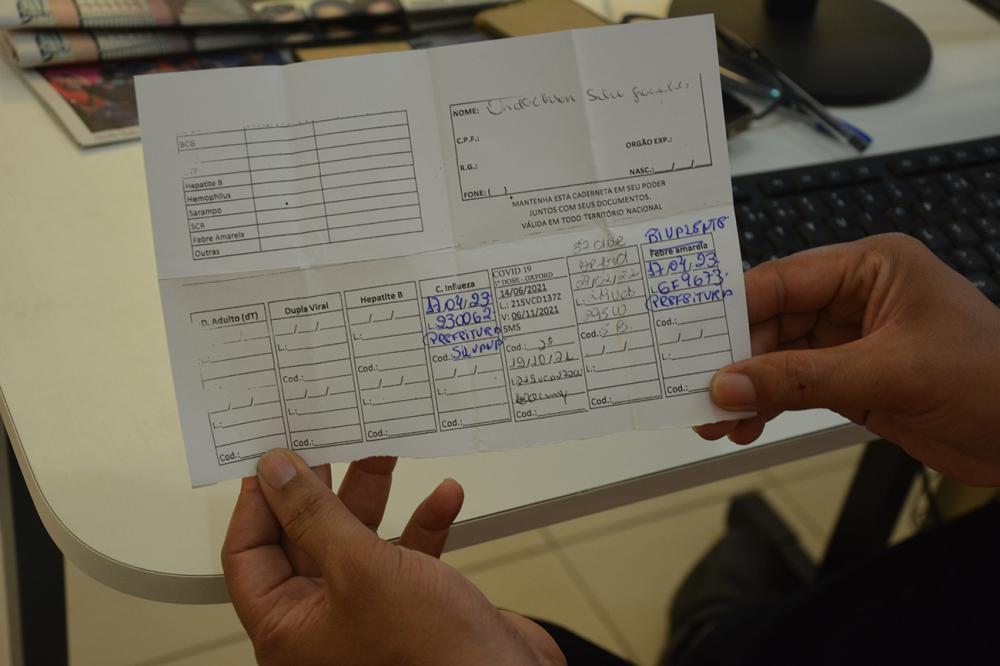 BCG
Hepatite B
Hemophilus
Sarampo
SCR
Febre Amarela
Outras
NOME:
C.P.F.:
ORGÃO EXP.:
R.G.:
NASC.: / /
FONE: ( )
MANTENHA ESTA CADERNETA EM SEU PODER
JUNTOS COM SEUS DOCUMENTOS.
VÁLIDA EM TODO TERRITÓRIO NACIONAL
D. Adulto (dT)
/ /
L.:
/ /
L.:
Cod.:
Dupla Viral
/ /
L.:
Cod.:
/ /
L.:
Cod.:
Hepatite B
/ /
L.:
Cod.:
/ /
L.:
Cod.:
C. Infueza
17.04.23
L.: 230062
PREFEITURA
Cod.: SILVANA
/ /
L.:
Cod.:
COVID 19
1ª DOSE - OXFORD
14/06/2021
L.: 215VCD137Z
V: 06/11/2021
SMS
Cod.: 2ª
19/10/21
L.:
Cod.:
L.:
Cod.:
/ /
L.:
Cod.:
BIVALENTE
Febre amarela
17.04.23
L.:
PREFEITURA
/ /
L.:
Cod.: